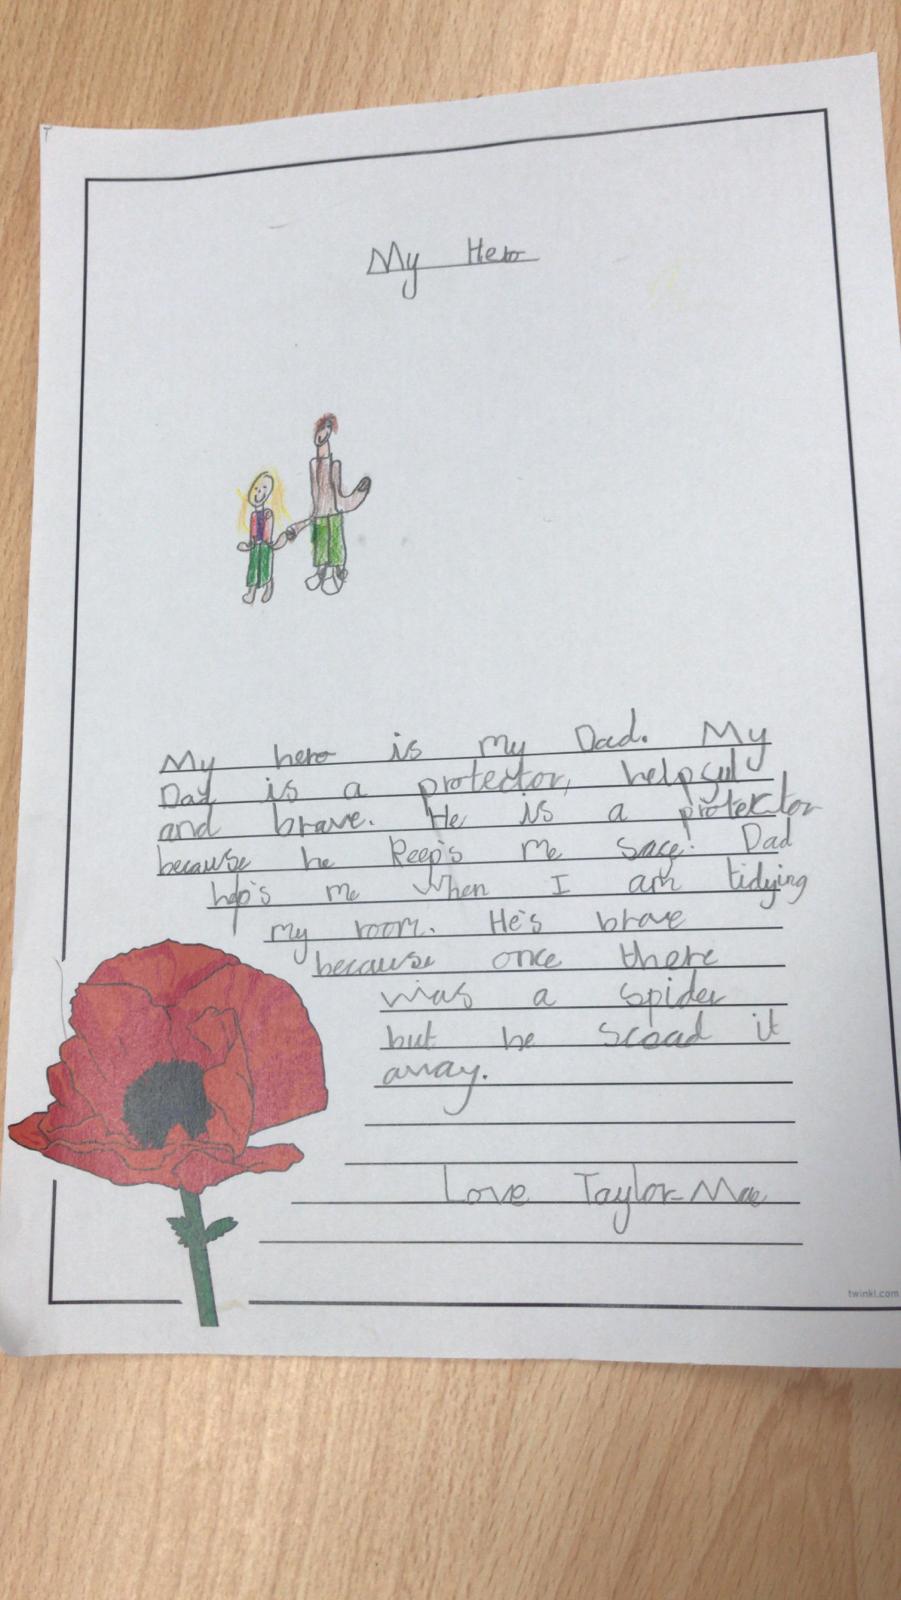 My Hero
My hero is my Dad. My
Dad is a protector, helpful
and brave. He is a protektor
because he keep's me safe! Dad
help's me when I am tidying
my room. He's brave
because once there
was a spider
but he scoad it
away.
Love Taylor-Mae
twinkl.com